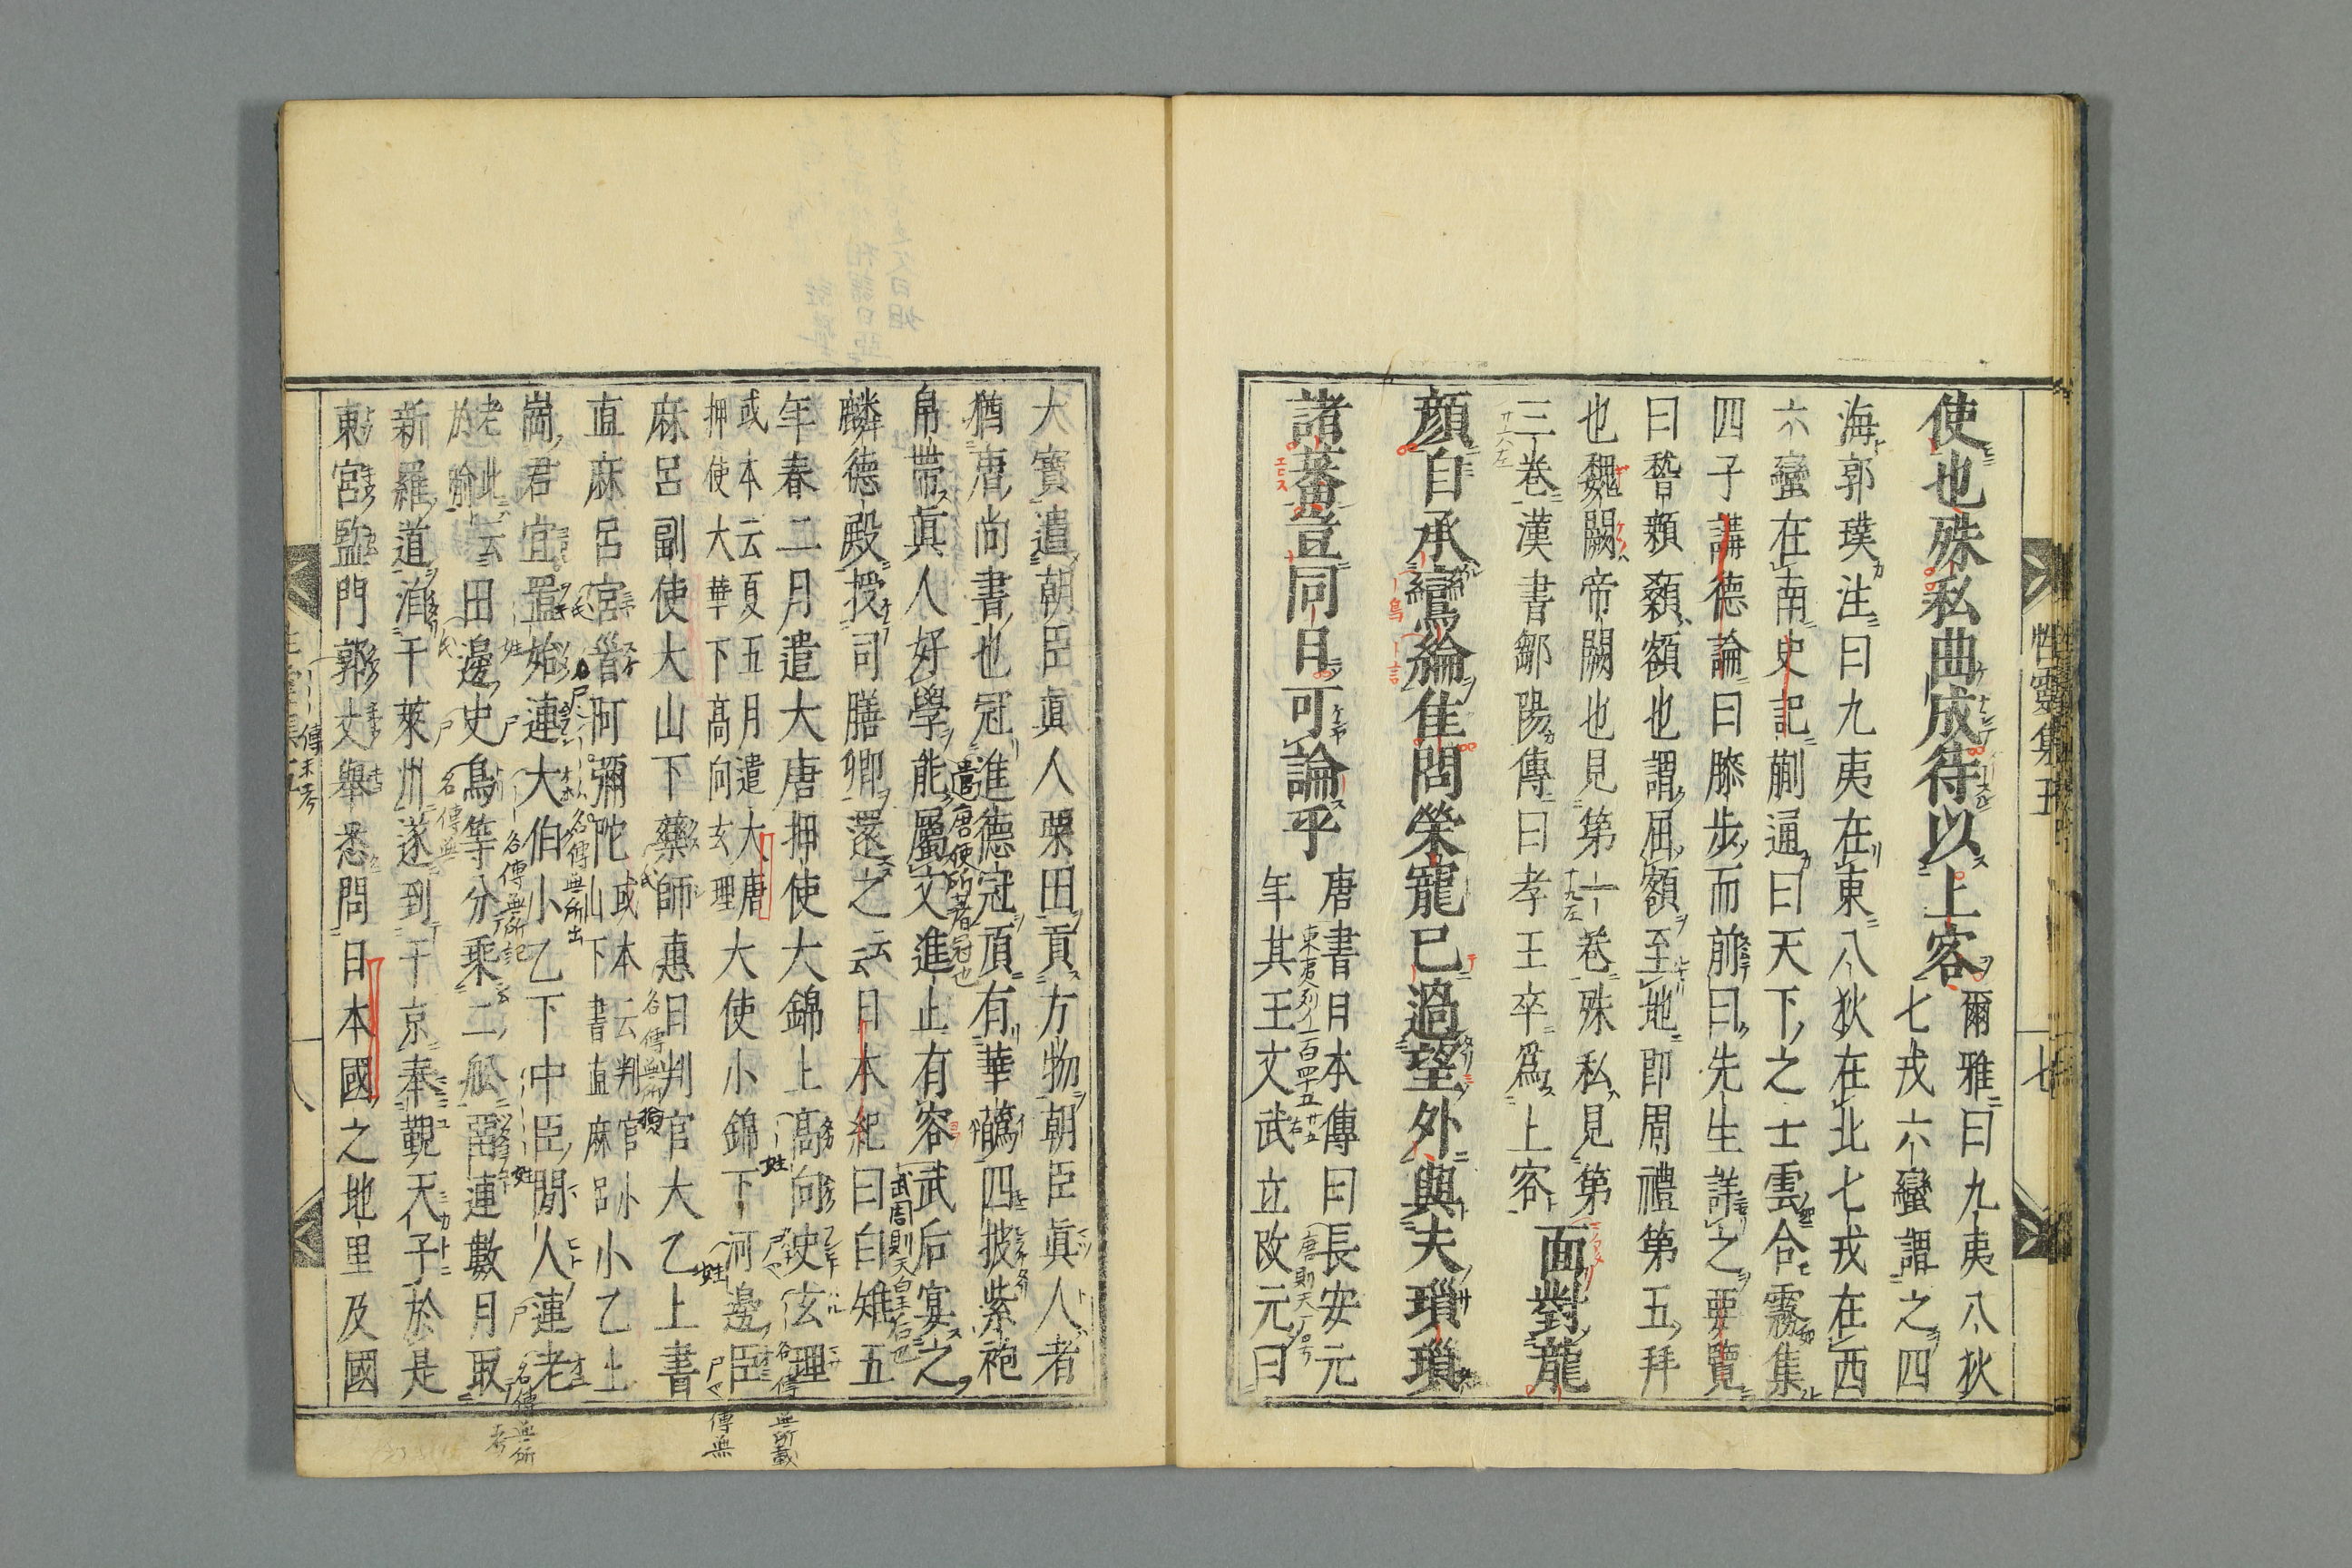 使也殊私曲成待以上客爾雅曰九夷八狄
七戎六蠻謂之四
海郭璞注曰九夷在東八狄在北七戎在西
六蠻在南史記蒯通曰天下之士雲合霧集
四子講德論曰膝步而前曰先生詳之要覽
曰稽顙顙額也謂屈額至地即周禮第五拜
也魏闕帝闕也見第十一卷殊私見第
三卷漢書鄒陽傳曰孝王卒爲上客面對龍
顏自承鸞綸佳問榮寵已過望外與夫瑣瑣
諸蕃豈同日可論乎唐書日本傳曰長安元
年其王文武立改元曰
大寶遣朝臣眞人粟田貢方物朝臣眞人者
猶唐尚書也冠進德冠頂有華蘤四披紫袍
帛帶眞人好學能屬文進止有容武后宴之
麟德殿授司膳卿還之云云日本紀曰白雉五
年春二月遣大唐押使大錦上高向史玄理
或本云夏五月遣大唐
押使大華下高向玄理大使小錦下河邊臣
麻呂副使大山下藥師惠日判官大乙上書
直麻呂宮首阿彌陀或本云判官小
山下書直麻呂小乙上
崗君宜置始連大伯小乙下中臣間人連老
老此云
於喩田邊史鳥等分乘二舩留連數月取
新羅道泊于萊州遂到于京奉覲天子於是
東宮監門郭丈擧悉問日本國之地里及國
性靈集五
七
遣唐使所著冠也
武周則天皇后也